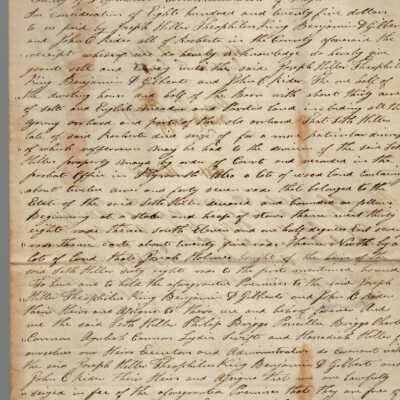 In consideration of Eight hundred and twenty five dollars
to us paid by Joseph Hiller Theophilus King Benjamin D Gilbert
and John C Rider all of in the County aforesaid the
receipt whereof we do hereby acknowledge do hereby give
grant sell and convey unto the said Joseph Hiller Theophilus
King Benjamin D Gilbert and John C Rider The one half of
the dwelling house and half of the Barn with about thirty acres
of salt and English meadow and Pasture land including all the
young orchard and part of the old orchard that Seth Hiller
late of said Rochester died seized of for a more particular
of which reference may be had to the division of the said Seth
Hiller property by order of Court and recorded in the
probate Office in Plymouth Also a lot of wood land containing
about twelve acres and forty seven rods that belonged to the
Estate of the said Seth Hiller deceased and bounded as follows
Beginning at a stake and heap of stones thence west thirty
eight rods thence south Eleven and one half degrees
rods thence easte about twenty five rods thence North by a
lot of land that Josiah Holmes bought of the heirs of the
said Seth Hiller sixty eight rods to the first mentioned bound
To have and to hold the aforegranted Premises to the said Joseph
Hiller Theophilus King Benjamin D Gilbert and John C Rider
their Heirs and Assigns to their use and behoof forever And
we the said Seth Hiller Philip Briggs Priscilla Briggs
Cannon Cannon Lydia Swift and Hiller for
ourselves our Heirs Executors and Administrators do covenant with
the said Joseph Hiller Theophilus King Benjamin D Gilbert and
John C Rider their Heirs and Assigns that we are lawfully
seized in fee of the aforegranted Premises that they are free of